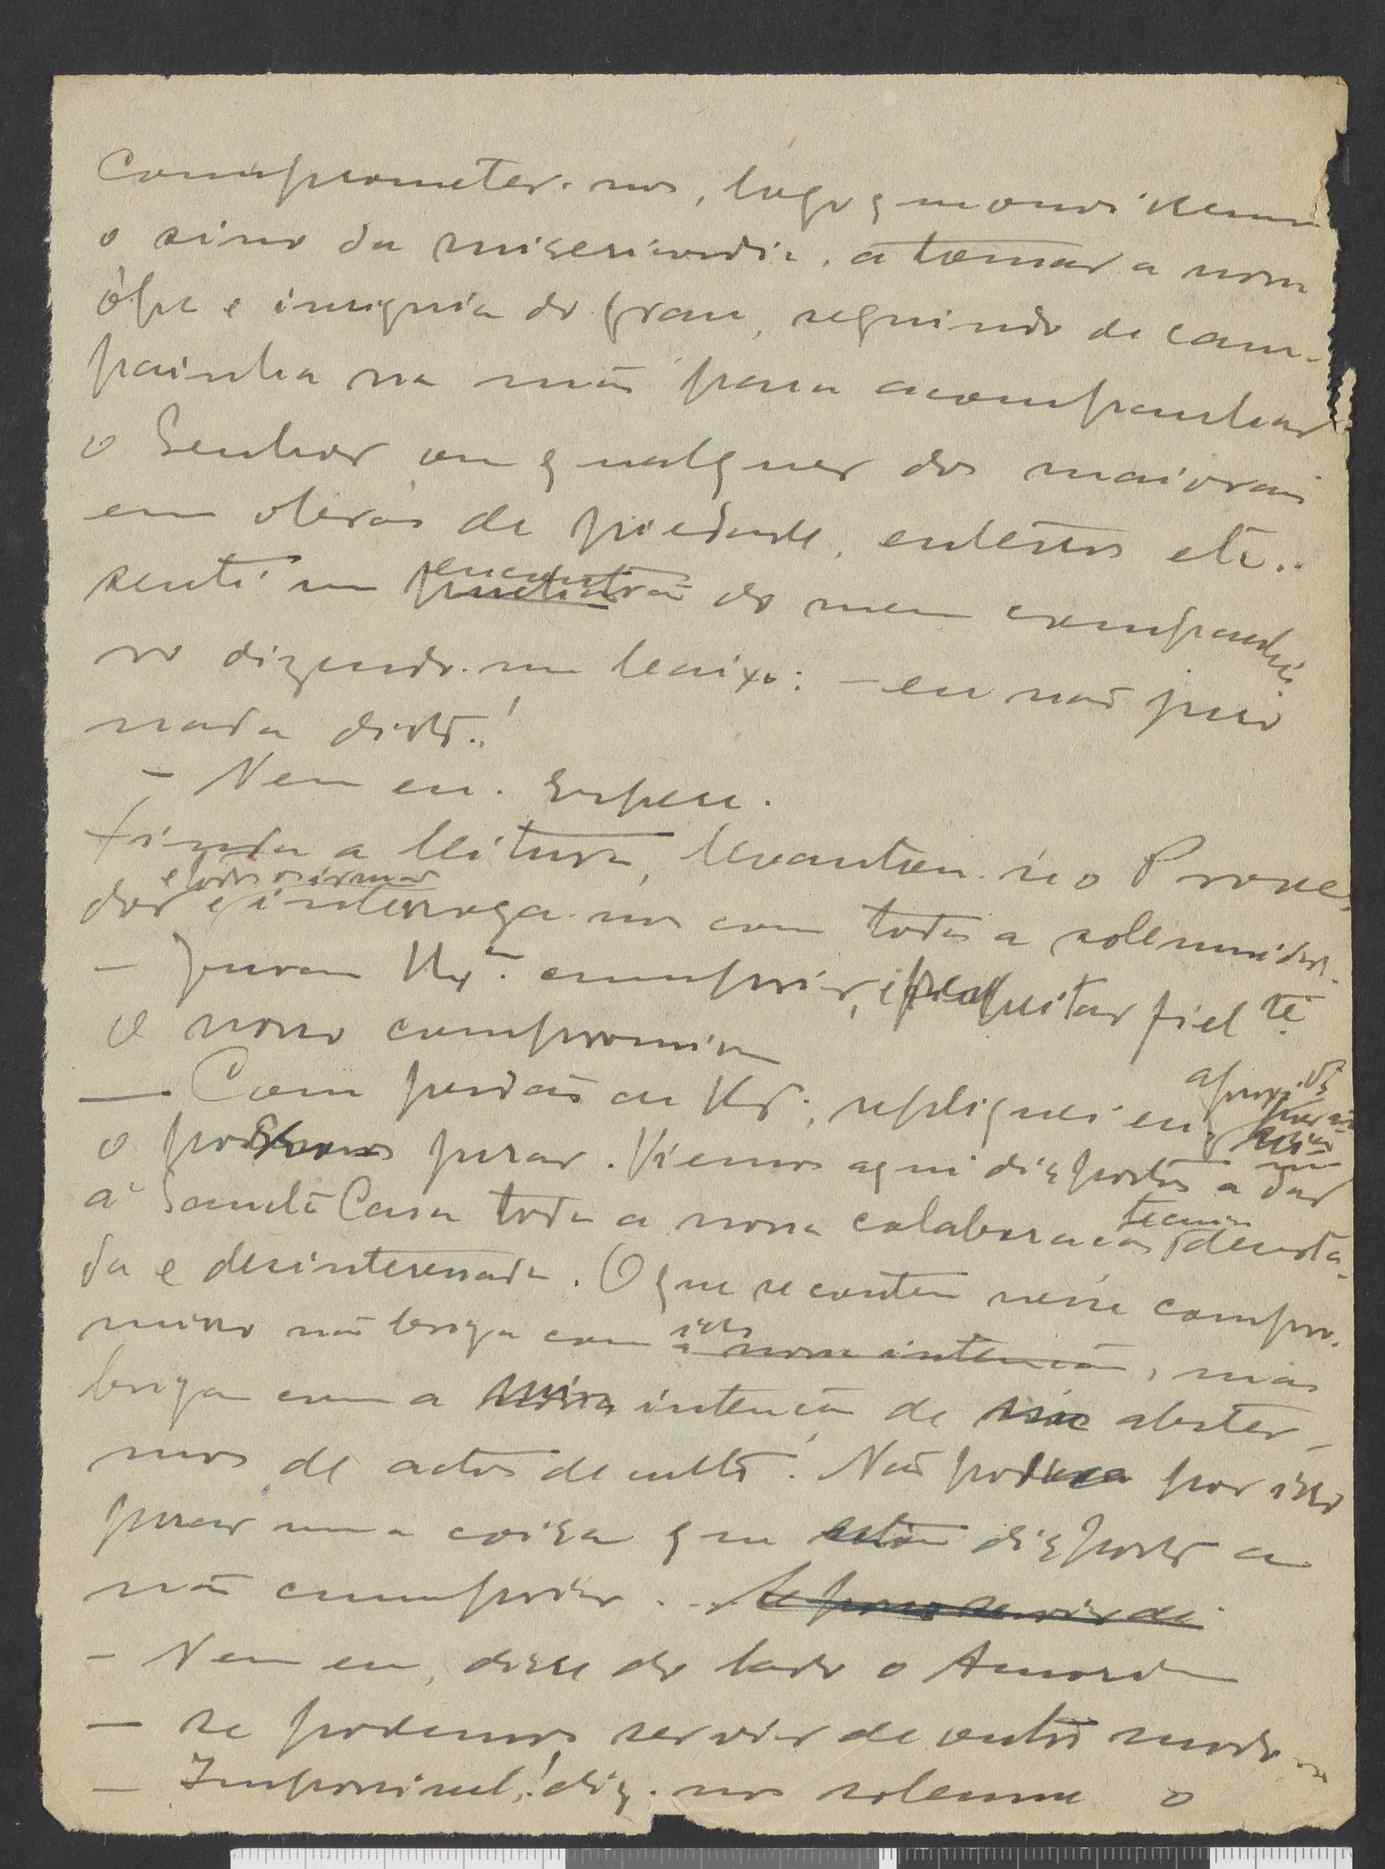 comprometer-nos, logo que ouvissemos
o sino da misericordia, a tomar a nossa
ópa e insignia do grau, seguindo de cam-
painha na mão para acompanhar
o Senhor ou qualquer dos maiorais
em obras de piedade, enterros etc..
senti um encontrão do meu companhei-
ro dizendo-me baixo: - eu não juro
nada disto!
- Nem eu. Espere.
Finda a leitura, levantou-se o Prove-
dor e todos os irmãos e interroga-nos com toda a solemnidade.
- Juram V. Ex.as cumprir, e respeitar fiel te
o nosso compromisso
— Com perdão de V. Ex., repliquei eu,
o podemos jurar. Viemos aqui dispostos a dar
á Santa Casa toda a nossa colaboração tecnica devota-
da e desinteressada. O que se contem nesse compro-
misso não briga com isso, mas
briga com a intenção de abster-
mos de actos de culto. Não posso por isso
jurar uma coisa que estou disposto a
não cumprir...
- Nem eu, disse do lado o Amorim
— se podemos servir de outro modo...
— Impossivel! diz-nos solemne o